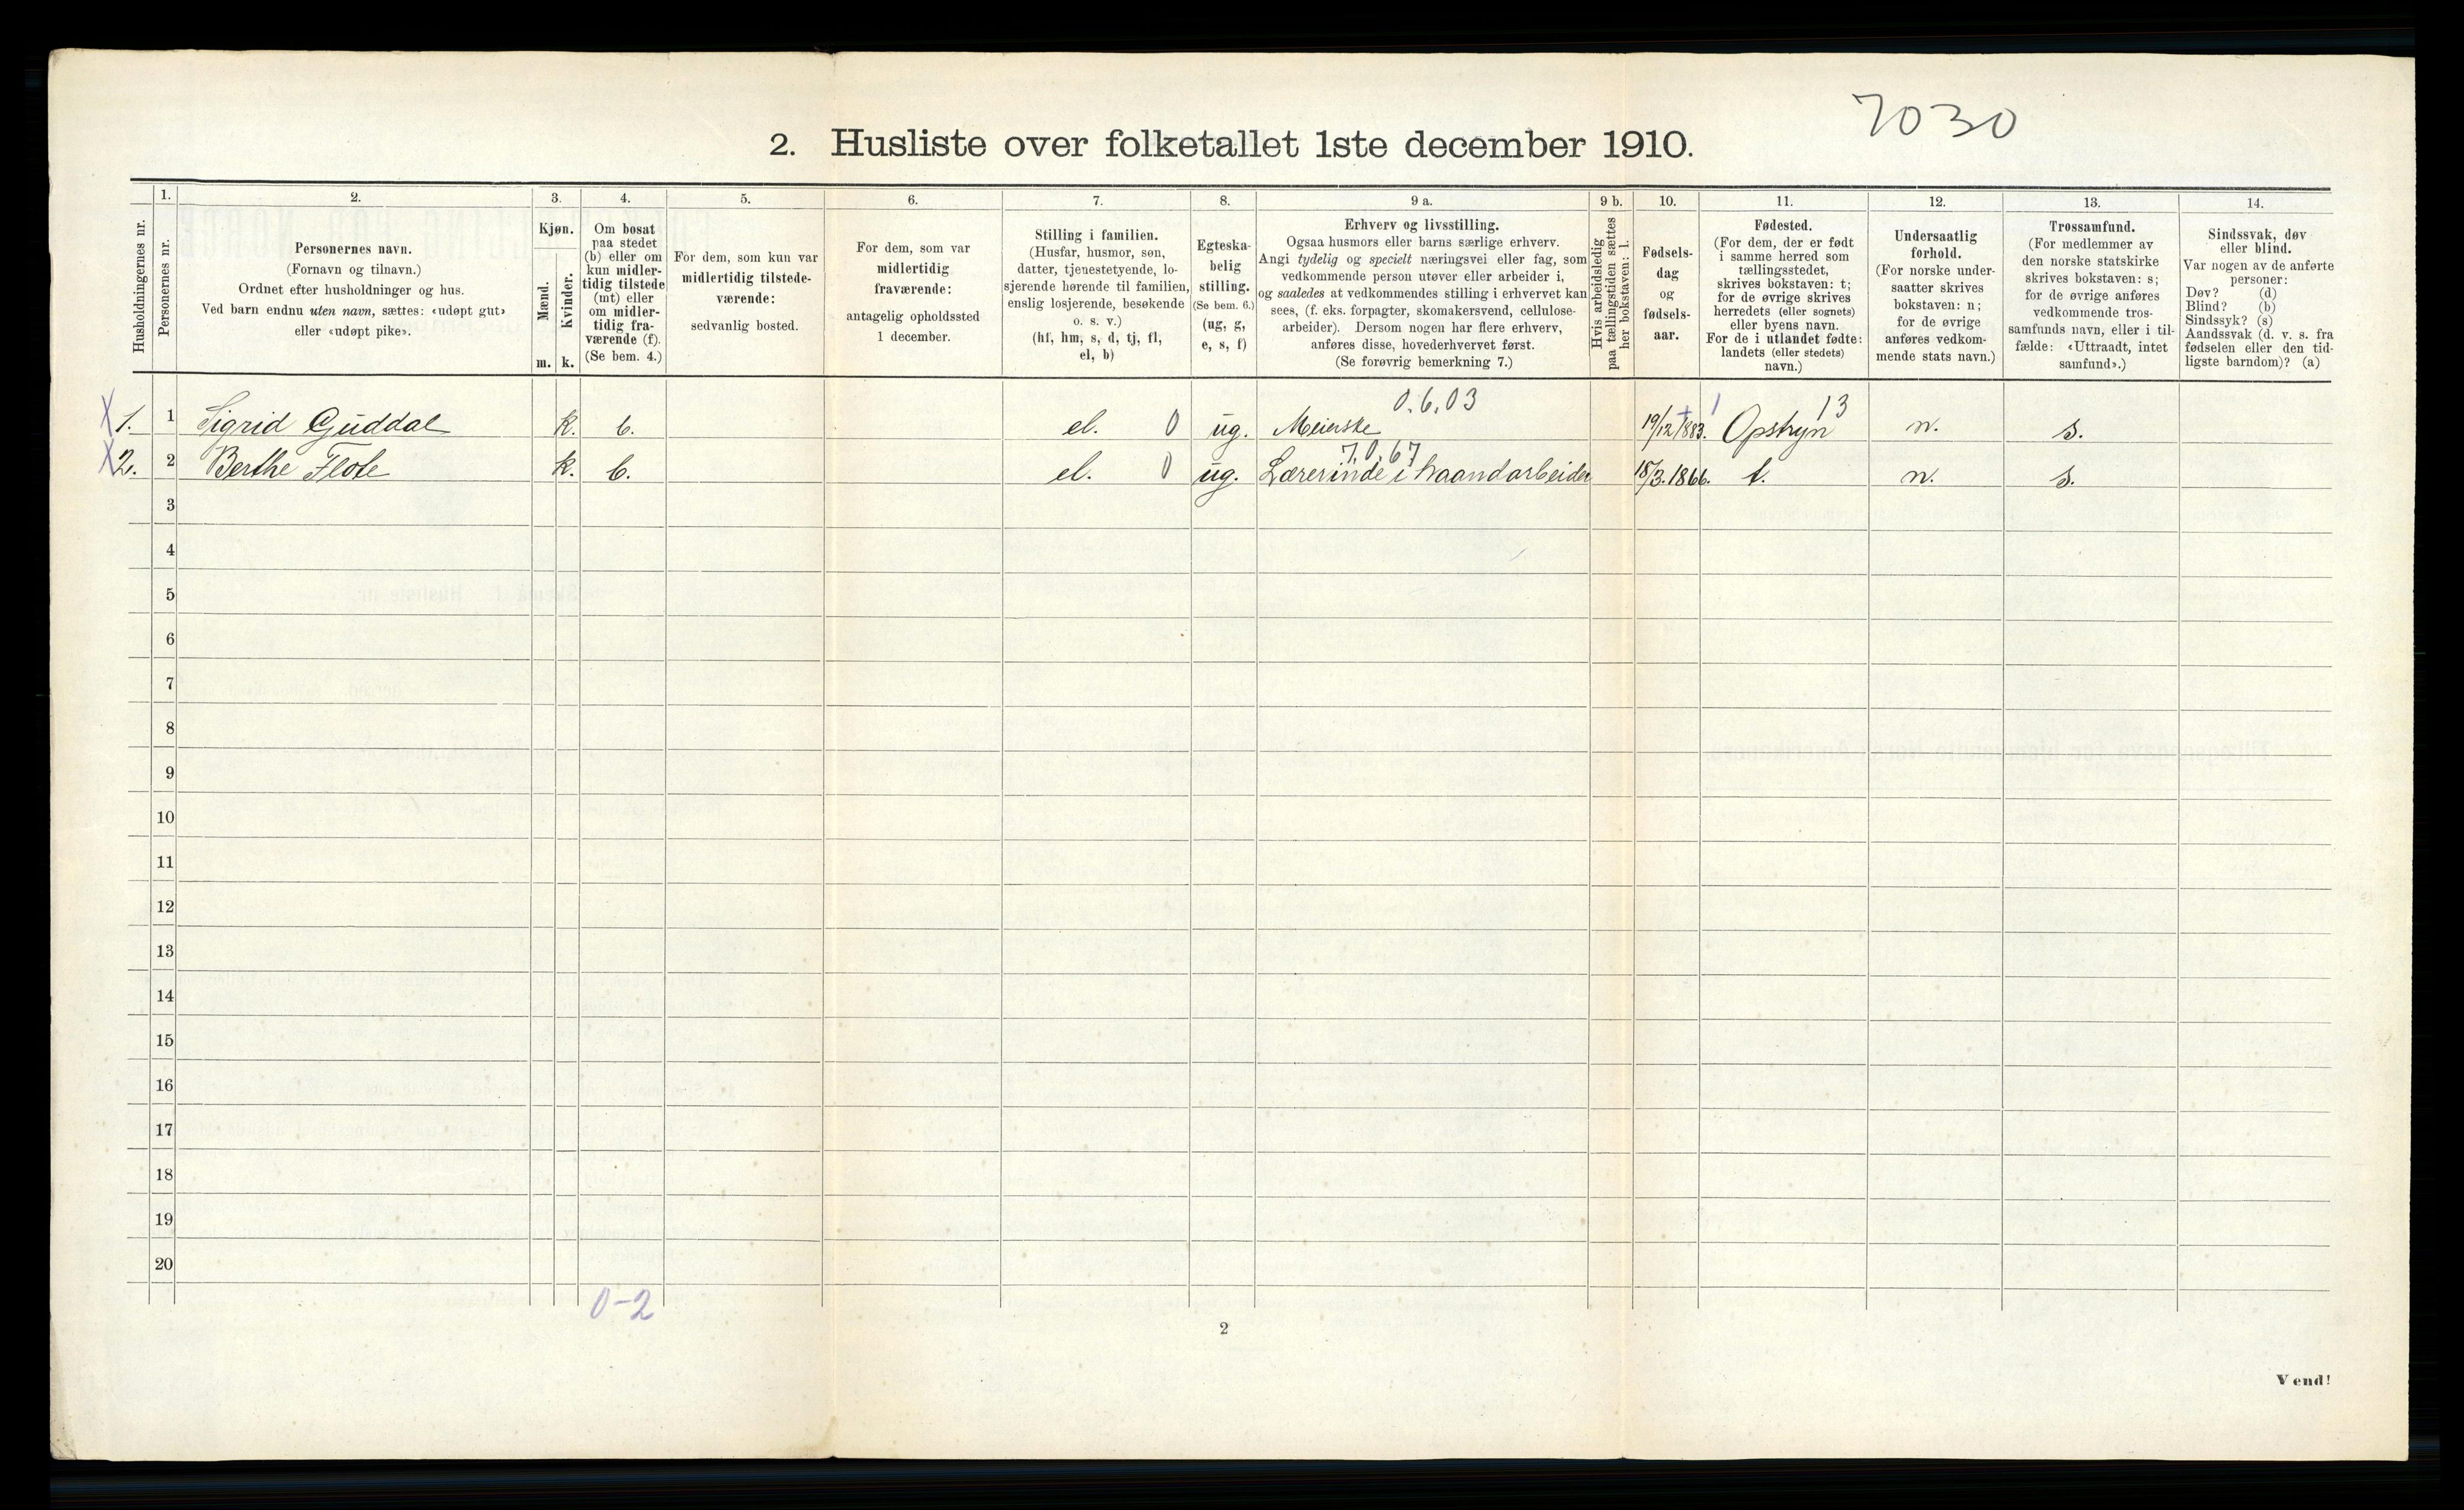 7030
2. Husliste over folketallet 1ste december 1910.
Husholdningernes nr.
1.
Personernes nr.
2.
Personernes navn.
(Fornavn og tilnavn.)
Ordnet efter husholdninger og hus.
Ved barn endnu uten navn, sættes: «udøpt gut»
eller «udøpt pike».
3.
Kjøn.
Mænd.
Kvinder.
m. k.
4.
Om bosat
paa stedet
(b) eller om
kun midler-
tidig tilstede
(mt) eller
om midler-
tidig fra-
værende (f).
(Se bem. 4.)
5.
For dem, som kun var
midlertidig tilstede-
værende:
sedvanlig bosted.
6.
For dem, som var
midlertidig
fraværende:
antagelig opholdssted
1 december.
7.
Stilling i familien.
(Husfar, husmor, søn,
datter, tjenestetyende, lo-
sjerende hørende til familien,
enslig losjerende, besøkende
o. s. v.)
(hf, hm, s, d, tj, fl,
el, b)
8.
Egteska-
belig
stilling.
(Se bem. 6.)
(ug, g,
e, s, f)
9 a.
Erhverv og livsstilling.
Ogsaa husmors eller barns særlige erhverv.
Angi tydelig og specielt næringsvei eller fag, som
vedkommende person utøver eller arbeider i,
og saaledes at vedkommendes stilling i erhvervet kan
sees, (f. eks. forpagter, skomakersvend, cellulose-
arbeider). Dersom nogen har flere erhverv,
anføres disse, hovederhvervet først.
(Se forøvrig bemerkning 7.)
9 b.
Hvis arbeidsledig
paa tællingstiden sættes
her bokstaven: l.
10.
Fødsels-
dag
og
fødsels-
aar.
11.
Fødested.
(For dem, der er født
i samme herred som
tællingsstedet,
skrives bokstaven: t;
for de øvrige skrives
herredets (eller sognets)
eller byens navn.
For de i utlandet fødte:
landets (eller stedets)
navn.)
12.
Undersaatlig
forhold.
(For norske under-
saatter skrives
bokstaven: n;
for de øvrige
anføres vedkom-
mende stats navn.)
13.
Trossamfund.
(For medlemmer av
den norske statskirke
skrives bokstaven: s;
for de øvrige anføres
vedkommende tros-
samfunds navn, eller i til-
fælde: «Uttraadt, intet
samfund».)
14.
Sindssvak, døv
eller blind.
Var nogen av de anførte
personer:
Døv? (d)
Blind? (b)
Sindssyk? (s)
Aandssvak (d. v. s. fra
fødselen eller den tid-
ligste barndom)? (a)
0.6.03 13
X 1. 1 Sigrid Guddal k. b. el. 0 ug. Meierske 19/12 1883. Opstryn n. s.
7.0.67
X 2. 2 Berthe Flote k. b. el. 0 ug. Lærerinde i haandarbeide 18/3. 1866. t. n. s.
3
4
5
6
7
8
9
10
11
12
13
14
15
16
17
18
19
20
0-2
2
Vend!